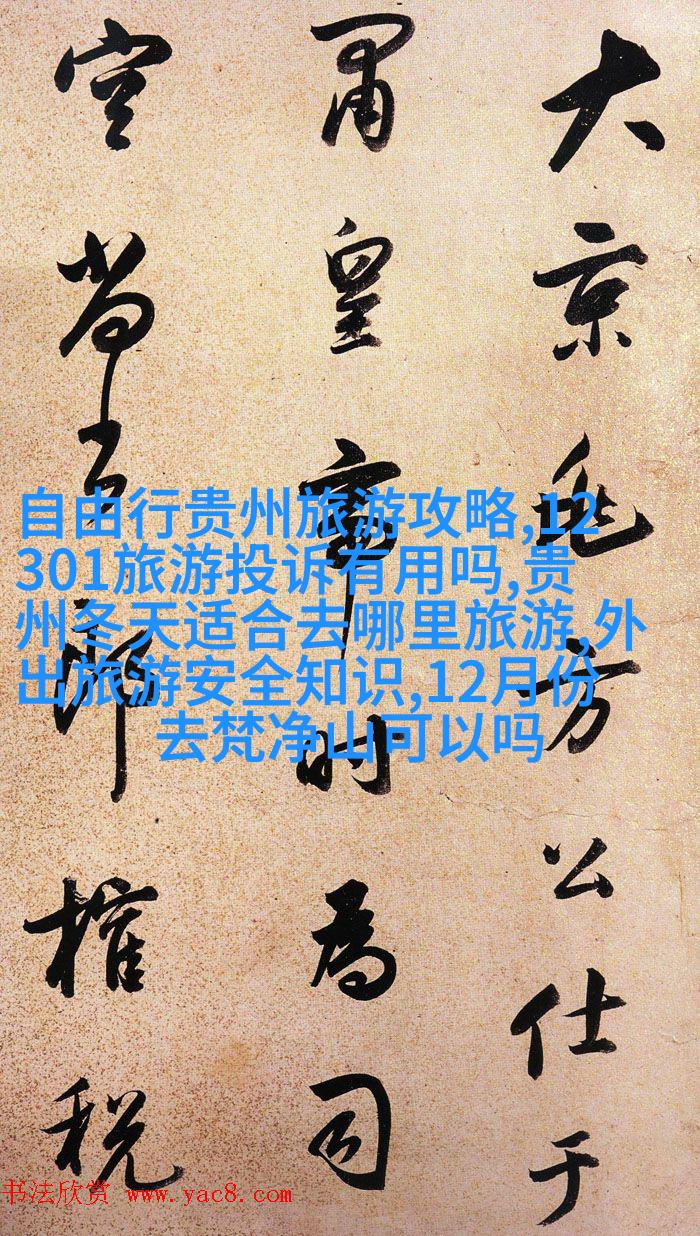 大京兆方公仕于
肅皇帝時為司
空尚書郎榷稅
自由行贵州旅游攻略,12
301旅游投诉有用吗,贵
州冬天适合去哪里旅游,外
出旅游安全知识,12月份
去梵净山可以吗
书法欣赏 www.yac8.com